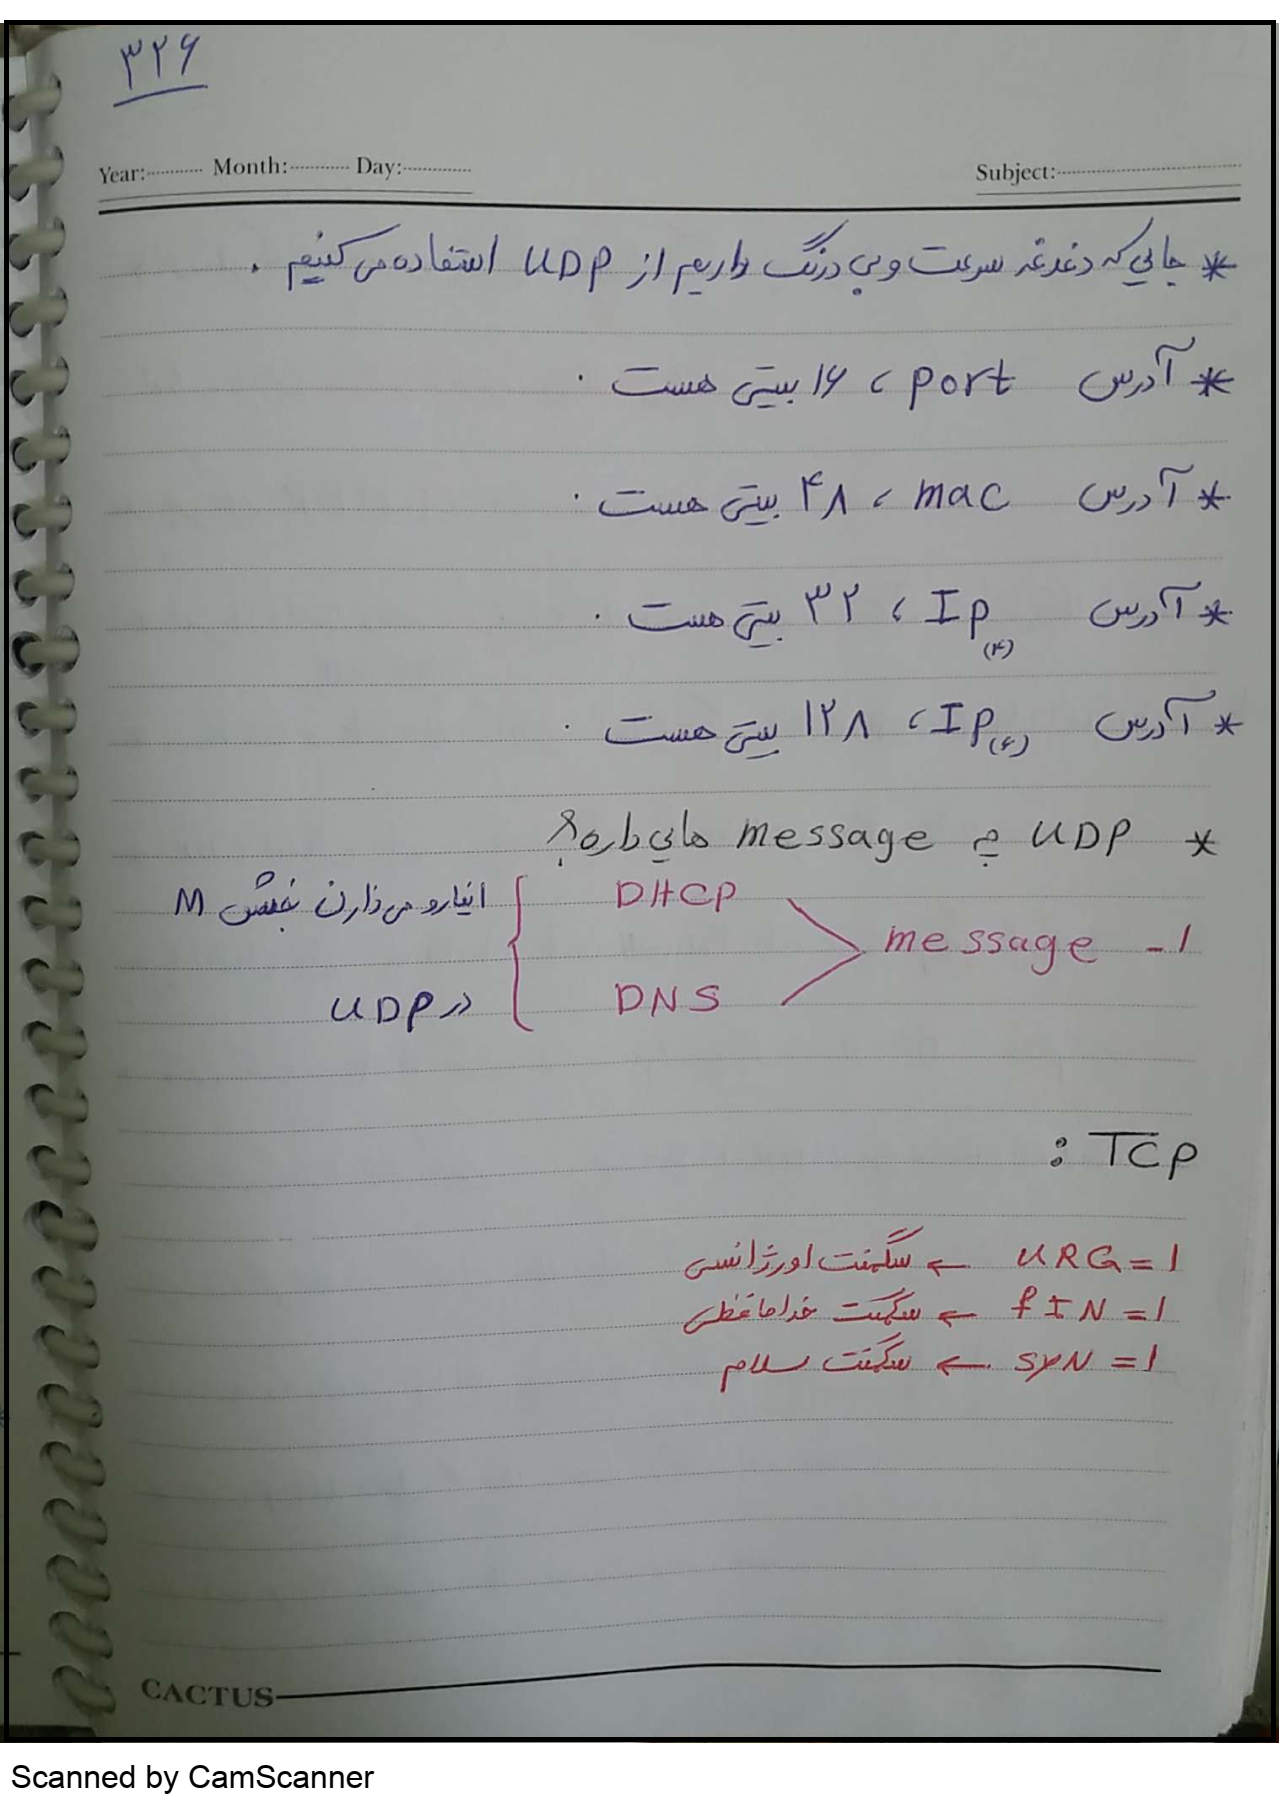 ۳۲۶
Year: Month: Day: Subject:
* جایی که دغدغه سرعت و بی درنگ داریم از UDP استفاده می کنیم .
* آدرس port ، ۱۶ بیتی هست .
* آدرس mac ، ۴۸ بیتی هست .
* آدرس Ip(۴) ، ۳۲ بیتی هست .
* آدرس Ip(۶) ، ۱۲۸ بیتی هست .
* UDP چه message هایی داره؟
DHCP اینارو می ذارن بخش M
۱- message
DNS در UDP
TCP :
URG=1 ← سگمنت اورژانسی
FIN=1 ← سگمنت خداحافظی
SYN=1 ← سگمنت سلام
CACTUS
Scanned by CamScanner